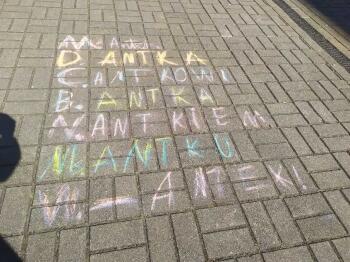 M. ANTEK
D. ANTKA
C. ANTKOWI
B. ANTKA
N. ANTKIEM
Ms. ANTKU
W. – ANTEK!